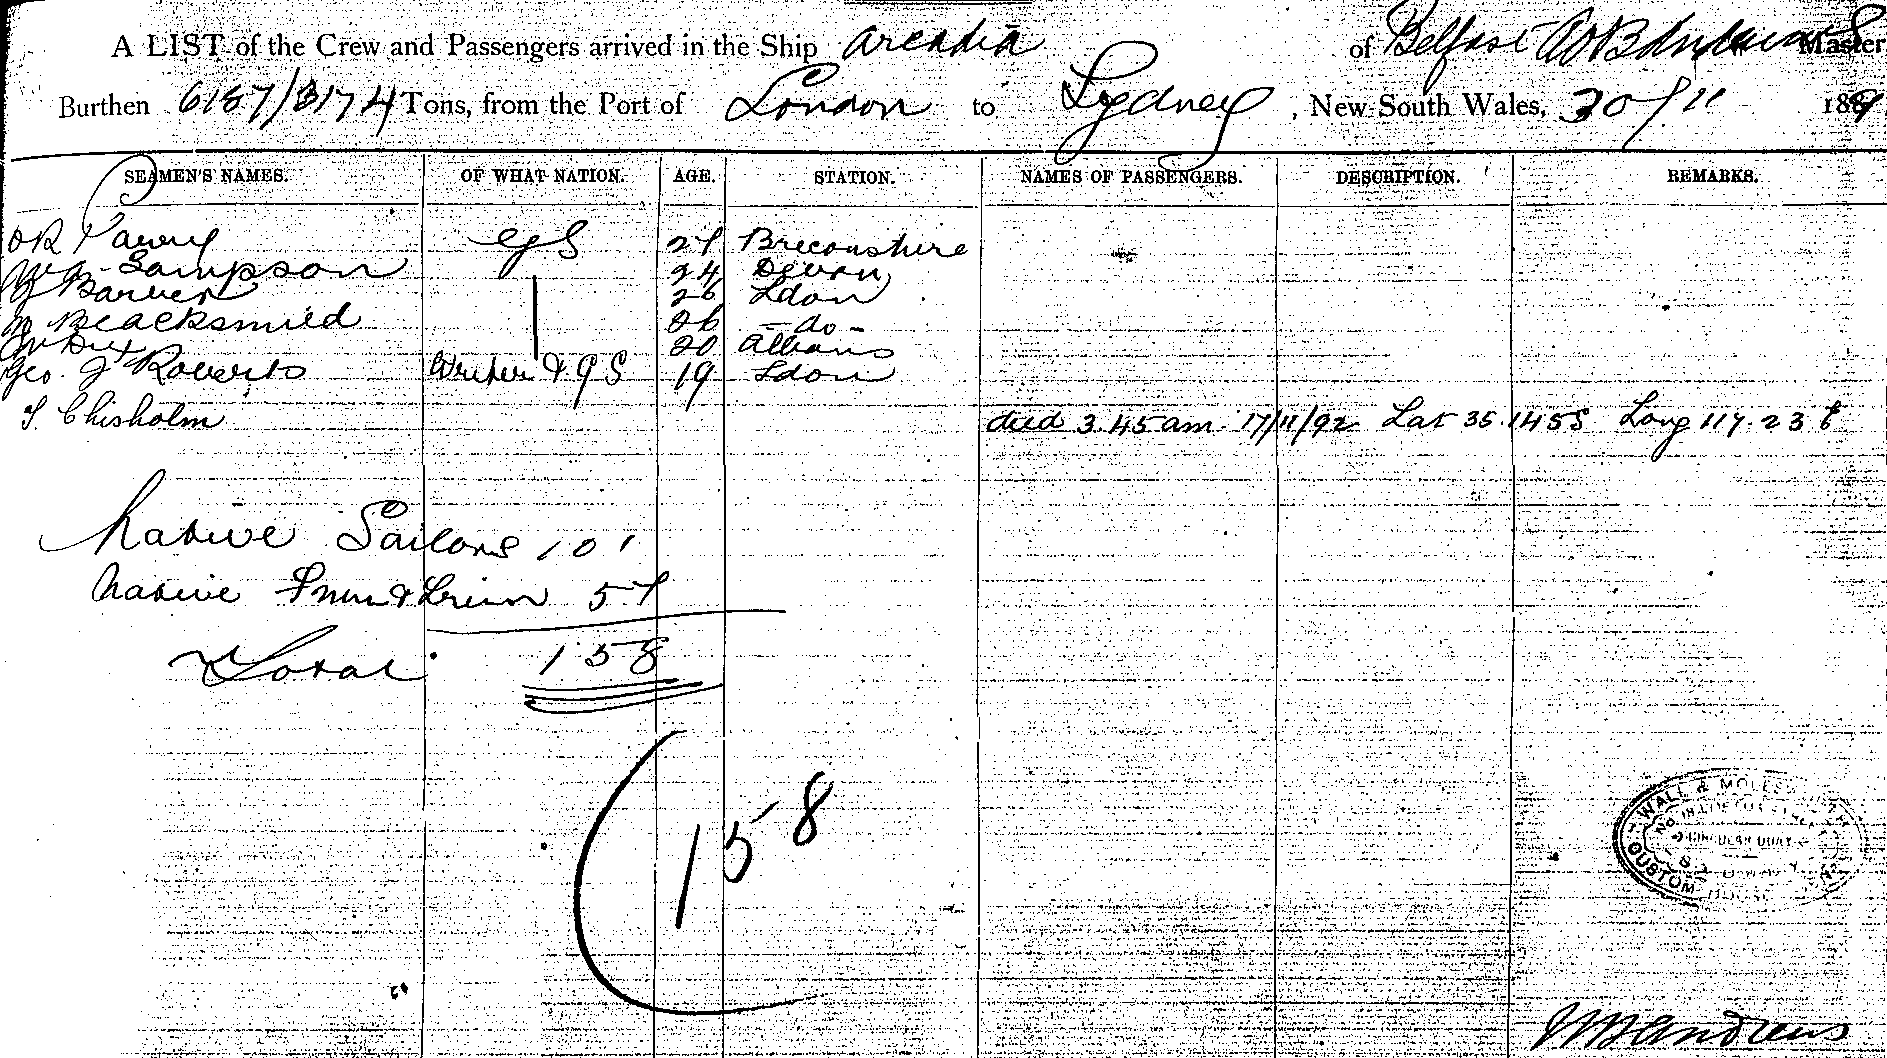 A LIST of the Crew and Passengers arrived in the Ship Arcadia of Belfast Master
Burthen 6187/3174 Tons, from the Port of London to Sydney, New South Wales, 30/11 189
SEAMEN'S NAMES. OF WHAT NATION. AGE. STATION. NAMES OF PASSENGERS. DESCRIPTION. REMARKS.
Parry G S 27 Breconshire
Sampson 24 Devon
Barber 26 Ldon
Blacksmied 26 - do -
20 Albans
Geo. J Roberts & G S 19 Ldon
Chisholm died 3.45 am 17/11/92 Lat 35.14 S Long 117.23 E
Native Sailors 101
Native & 57
Total 158
158
WALL &
CUSTOM HOUSE
Andrews